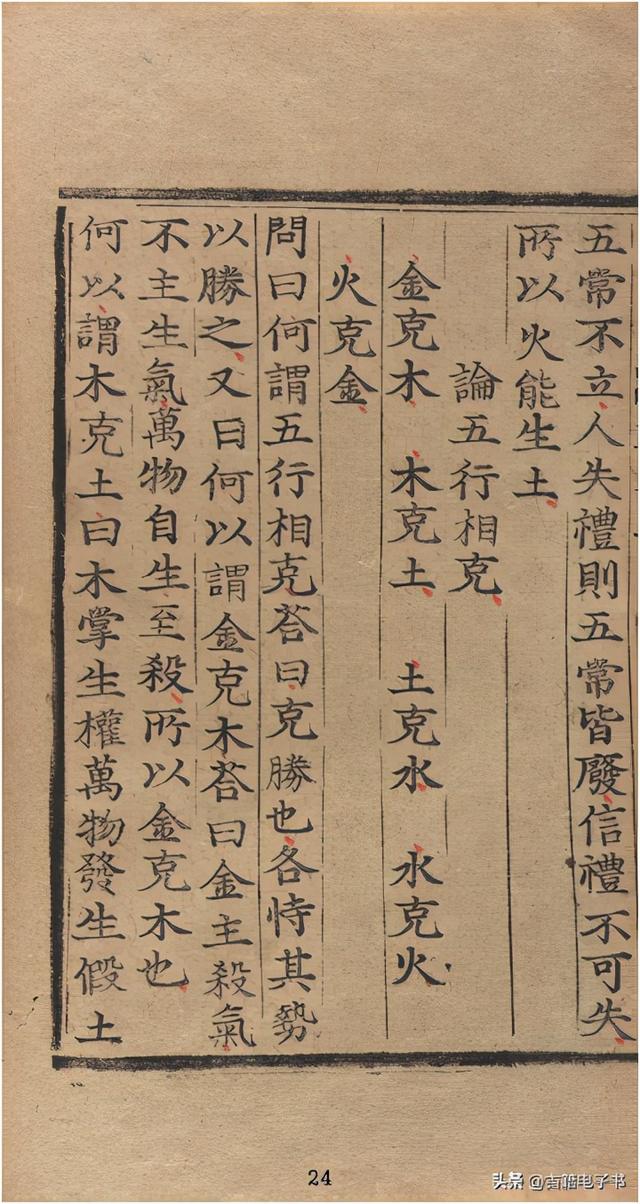 五常不立人失禮則五常皆廢信禮不可失
所以火能生土
論五行相克
金克木　木克土　土克水　水克火
火克金
問曰何謂五行相克荅曰克勝也各恃其勢
以勝之又曰何以謂金克木荅曰金主殺氣
不主生氣萬物自生至殺所以金克木也
何以謂木克土曰木掌生權萬物發生假土
24
头条 @古籍电子书